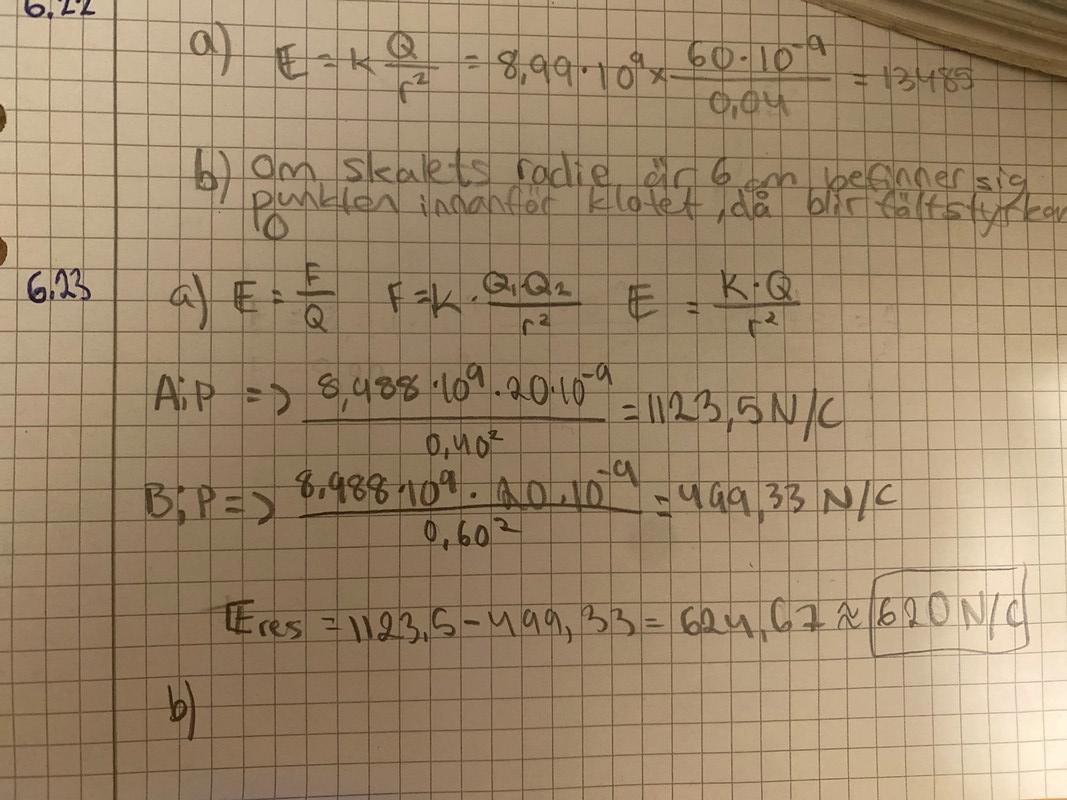 6.22
a) E = k Q/r² = 8,99·10⁹ × 60·10⁻⁹/0,04 = 13485
b) Om skalets radie är 6 cm befinner sig
punkten innanför klotet, då blir fältstyrkan
0
6.23 a) E = F/Q F = k · Q₁·Q₂/r² E = K·Q/r²
A;P => 8,988·10⁹·20·10⁻⁹/0,40² = 1123,5 N/C
B;P => 8,988·10⁹·20·10⁻⁹/0,60² = 499,33 N/C
Eres = 1123,5 - 499,33 = 624,67 ≈ 620 N/C
b)